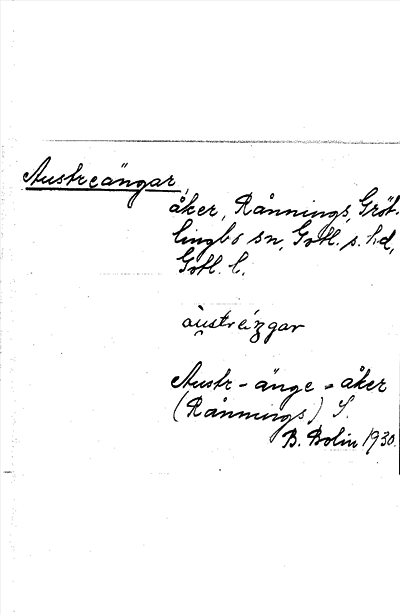 Austreängar,
åker, Rånnings, Gröt-
lingbo sn, Gotl. s. hd,
Gotl. l.
Austr-änge-åker
(Rånnings) S.
B. Bolin 1930.